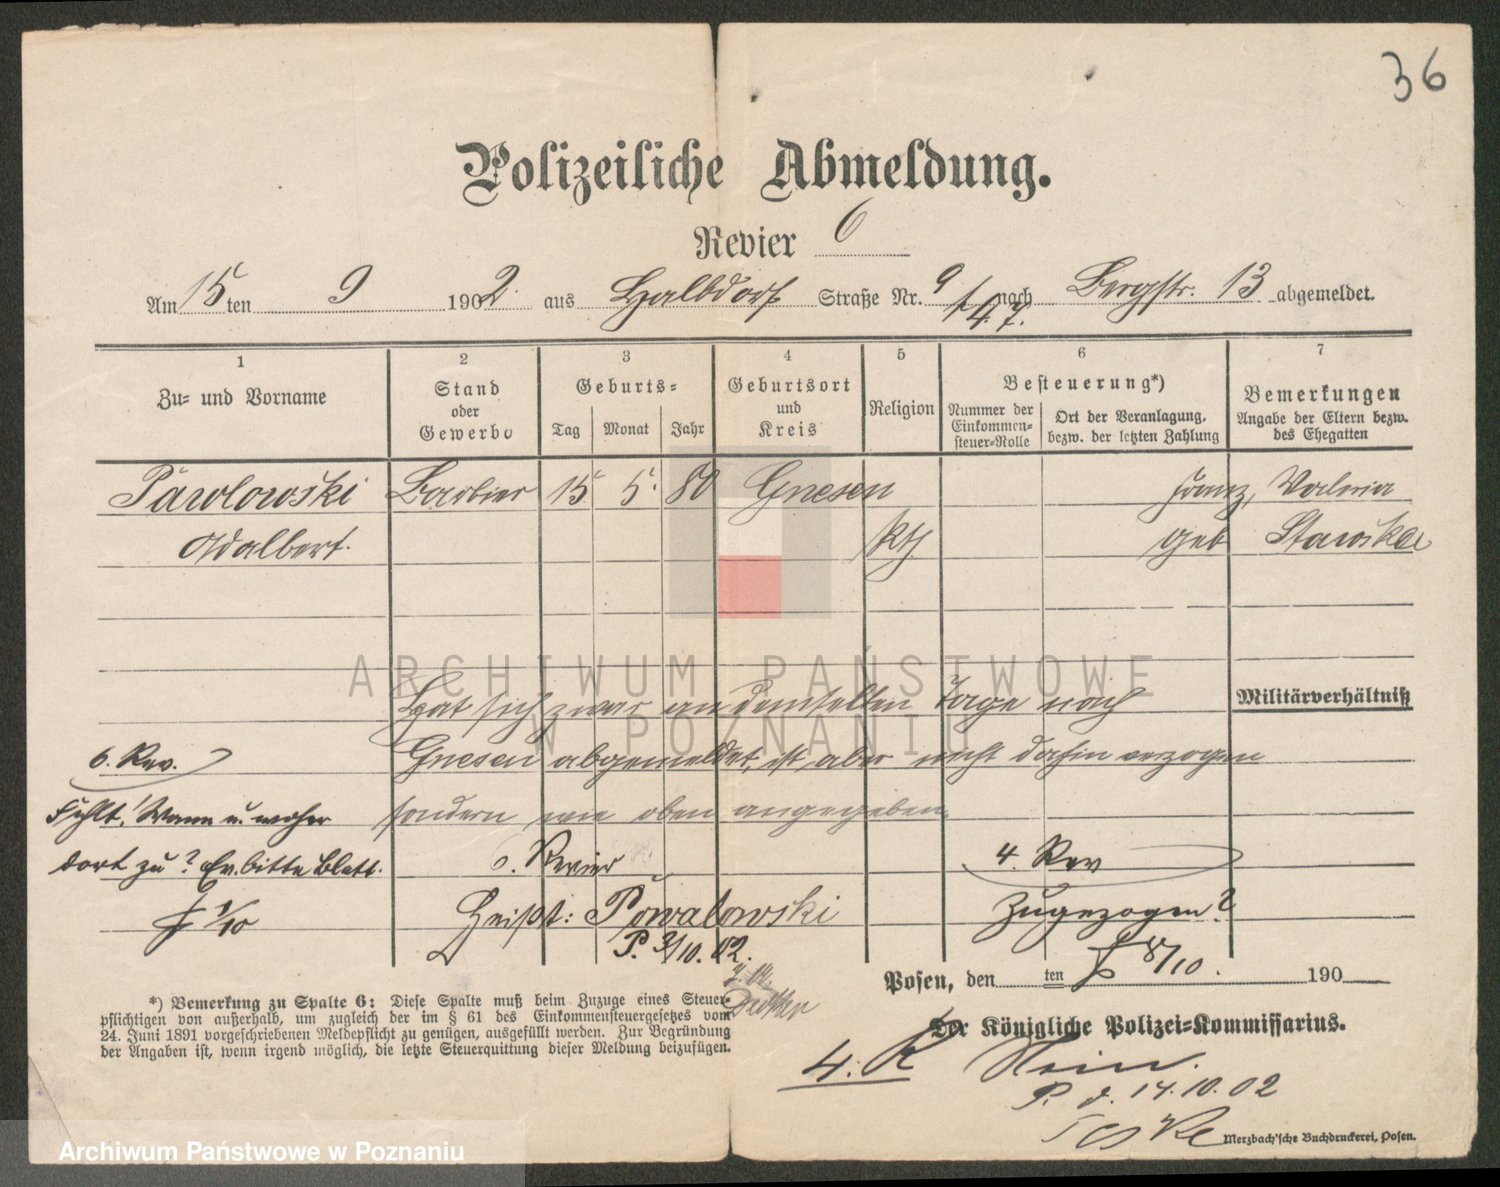 36
Polizeiliche Abmeldung.
Revier 6
Am 15 ten 9 1902 aus Halbdorf Straße Nr. 9 nach Bergstr. 13 abgemeldet.
1 2 3 4 5 6 7
Zu= und Vorname
Stand
oder
Gewerbe
Geburts=
Tag Monat Jahr
Geburtsort
und
Kreis
Religion
Besteuerung*)
Nummer der
Einkommen=
steuer=Rolle
Ort der Veranlagung,
bezw. der letzten Zahlung
Bemerkungen
Angabe der Eltern bezw.
des Ehegatten
Pawlowski Barbier 15 5. 80 Gnesen Franz, Valeria
Adalbert. kth. geb Stawska
ARCHIWUM PAŃSTWOWE
W POZNANIU
Militärverhältniß
Hat sich zwar an demselben Tage nach
Gnesen abgemeldet, ist aber nicht dahin verzogen
sondern wie oben angegeben.
6. Revier
6. Rev.
Fehlt! Wann u. woher
dort zu? Ev. bitte Blatt.
1/10
Heißt: Powalowski
P. 3/10. 02.
4. Rev
Zugezogen?
Posen, den ten 8/10. 190
Der Königliche Polizei=Kommissarius.
*) Bemerkung zu Spalte 6: Diese Spalte muß beim Zuzuge eines Steuer=
pflichtigen von außerhalb, um zugleich der im § 61 des Einkommensteuergesetzes vom
24. Juni 1891 vorgeschriebenen Meldepflicht zu genügen, ausgefüllt werden. Zur Begründung
der Angaben ist, wenn irgend möglich, die letzte Steuerquittung dieser Meldung beizufügen.
4. R Nein.
P. d. 14.10.02
Merzbach'sche Buchdruckerei, Posen.
Archiwum Państwowe w Poznaniu